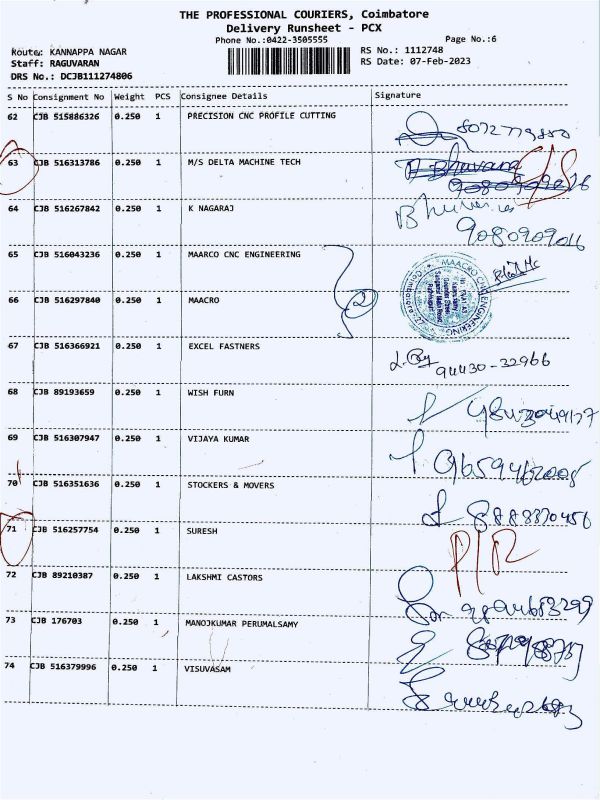 THE PROFESSIONAL COURIERS, Coimbatore
Delivery Runsheet - PCX
Phone No.:0422-3505555 Page No.:6
Route: KANNAPPA NAGAR RS No.: 1112748
Staff: RAGUVARAN RS Date: 07-Feb-2023
DRS No.: DCJB111274806
S No Consignment No Weight PCS Consignee Details Signature
62 CJB 515886326 0.250 1 PRECISION CNC PROFILE CUTTING
63 CJB 516313786 0.250 1 M/S DELTA MACHINE TECH
64 CJB 516267842 0.250 1 K NAGARAJ
9080909016
65 CJB 516043236 0.250 1 MAARCO CNC ENGINEERING
66 CJB 516297840 0.250 1 MAACRO 2
MAACRO CNC ENGINEERING
67 CJB 516366921 0.250 1 EXCEL FASTNERS
94430-32966
68 CJB 89193659 0.250 1 WISH FURN
69 CJB 516307947 0.250 1 VIJAYA KUMAR
70 CJB 516351636 0.250 1 STOCKERS & MOVERS
71 CJB 516257754 0.250 1 SURESH
72 CJB 89210387 0.250 1 LAKSHMI CASTORS
73 CJB 176703 0.250 1 MANOJKUMAR PERUMALSAMY
74 CJB 516379996 0.250 1 VISUVASAM